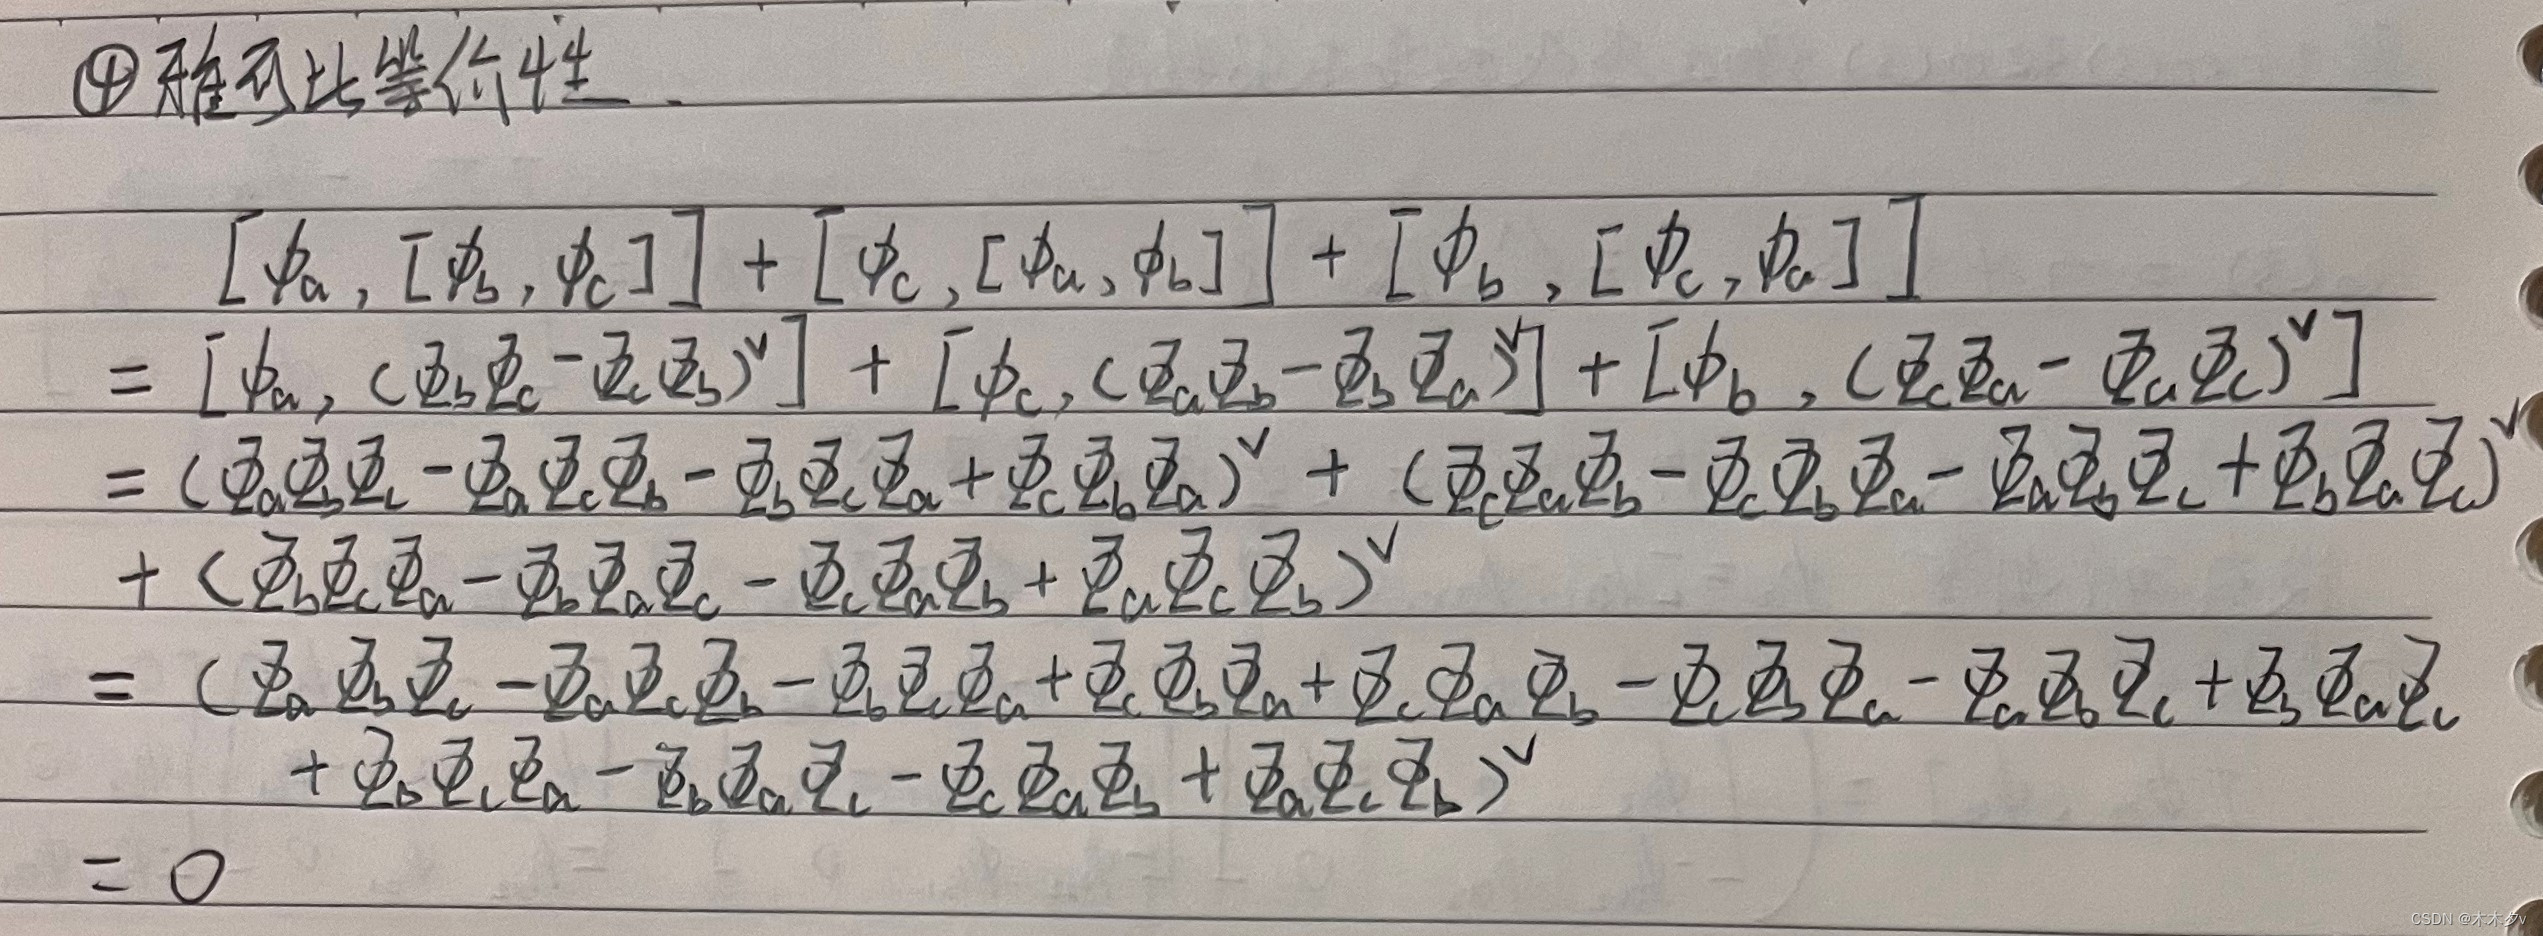 ④雅可比等价性.
[ϕa, [ϕb, ϕc]] + [ϕc, [ϕa, ϕb]] + [ϕb, [ϕc, ϕa]]
= [ϕa, (ΦbΦc - ΦcΦb)^∨] + [ϕc, (ΦaΦb - ΦbΦa)^∨] + [ϕb, (ΦcΦa - ΦaΦc)^∨]
= (ΦaΦbΦc - ΦaΦcΦb - ΦbΦcΦa + ΦcΦbΦa)^∨ + (ΦcΦaΦb - ΦcΦbΦa - ΦaΦbΦc + ΦbΦaΦc)^∨
+ (ΦbΦcΦa - ΦbΦaΦc - ΦcΦaΦb + ΦaΦcΦb)^∨
= (ΦaΦbΦc - ΦaΦcΦb - ΦbΦcΦa + ΦcΦbΦa + ΦcΦaΦb - ΦcΦbΦa - ΦaΦbΦc + ΦbΦaΦc
+ ΦbΦcΦa - ΦbΦaΦc - ΦcΦaΦb + ΦaΦcΦb)^∨
= 0
CSDN @木木夕v